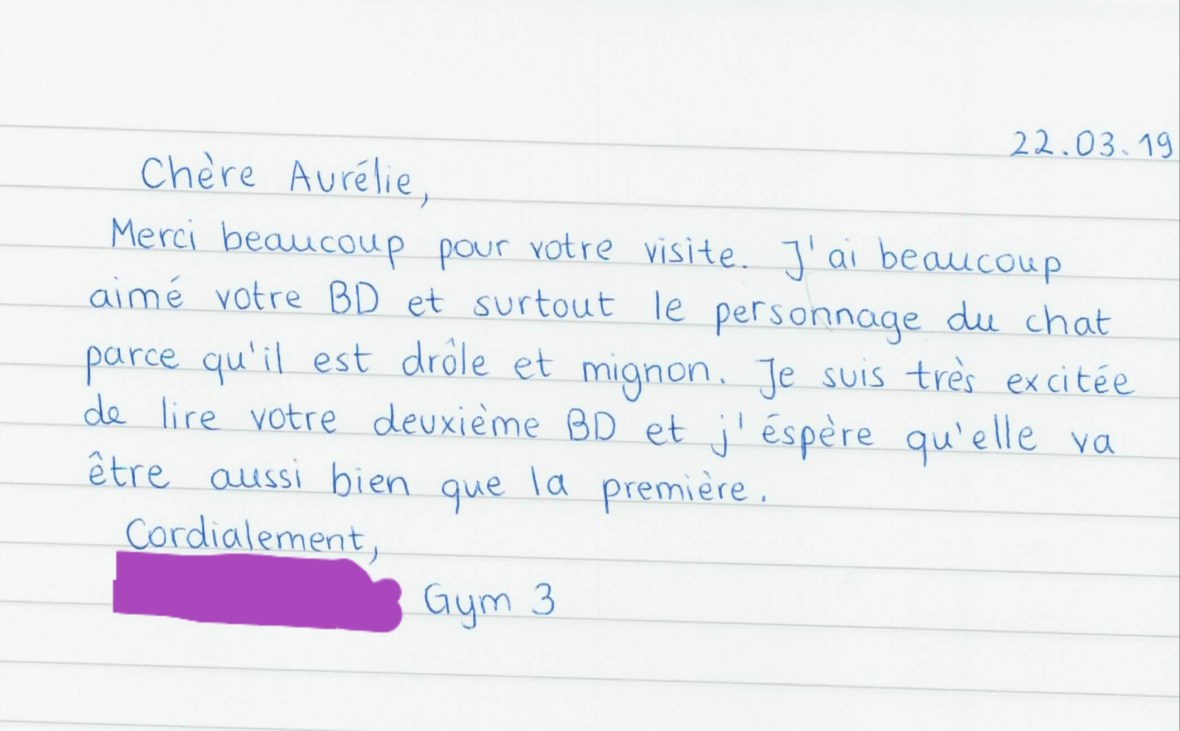 22.03.19
Chère Aurélie,
Merci beaucoup pour votre visite. J'ai beaucoup
aimé votre BD et surtout le personnage du chat
parce qu'il est drôle et mignon. Je suis très excitée
de lire votre deuxième BD et j'éspère qu'elle va
être aussi bien que la première.
Cordialement,
Gym 3